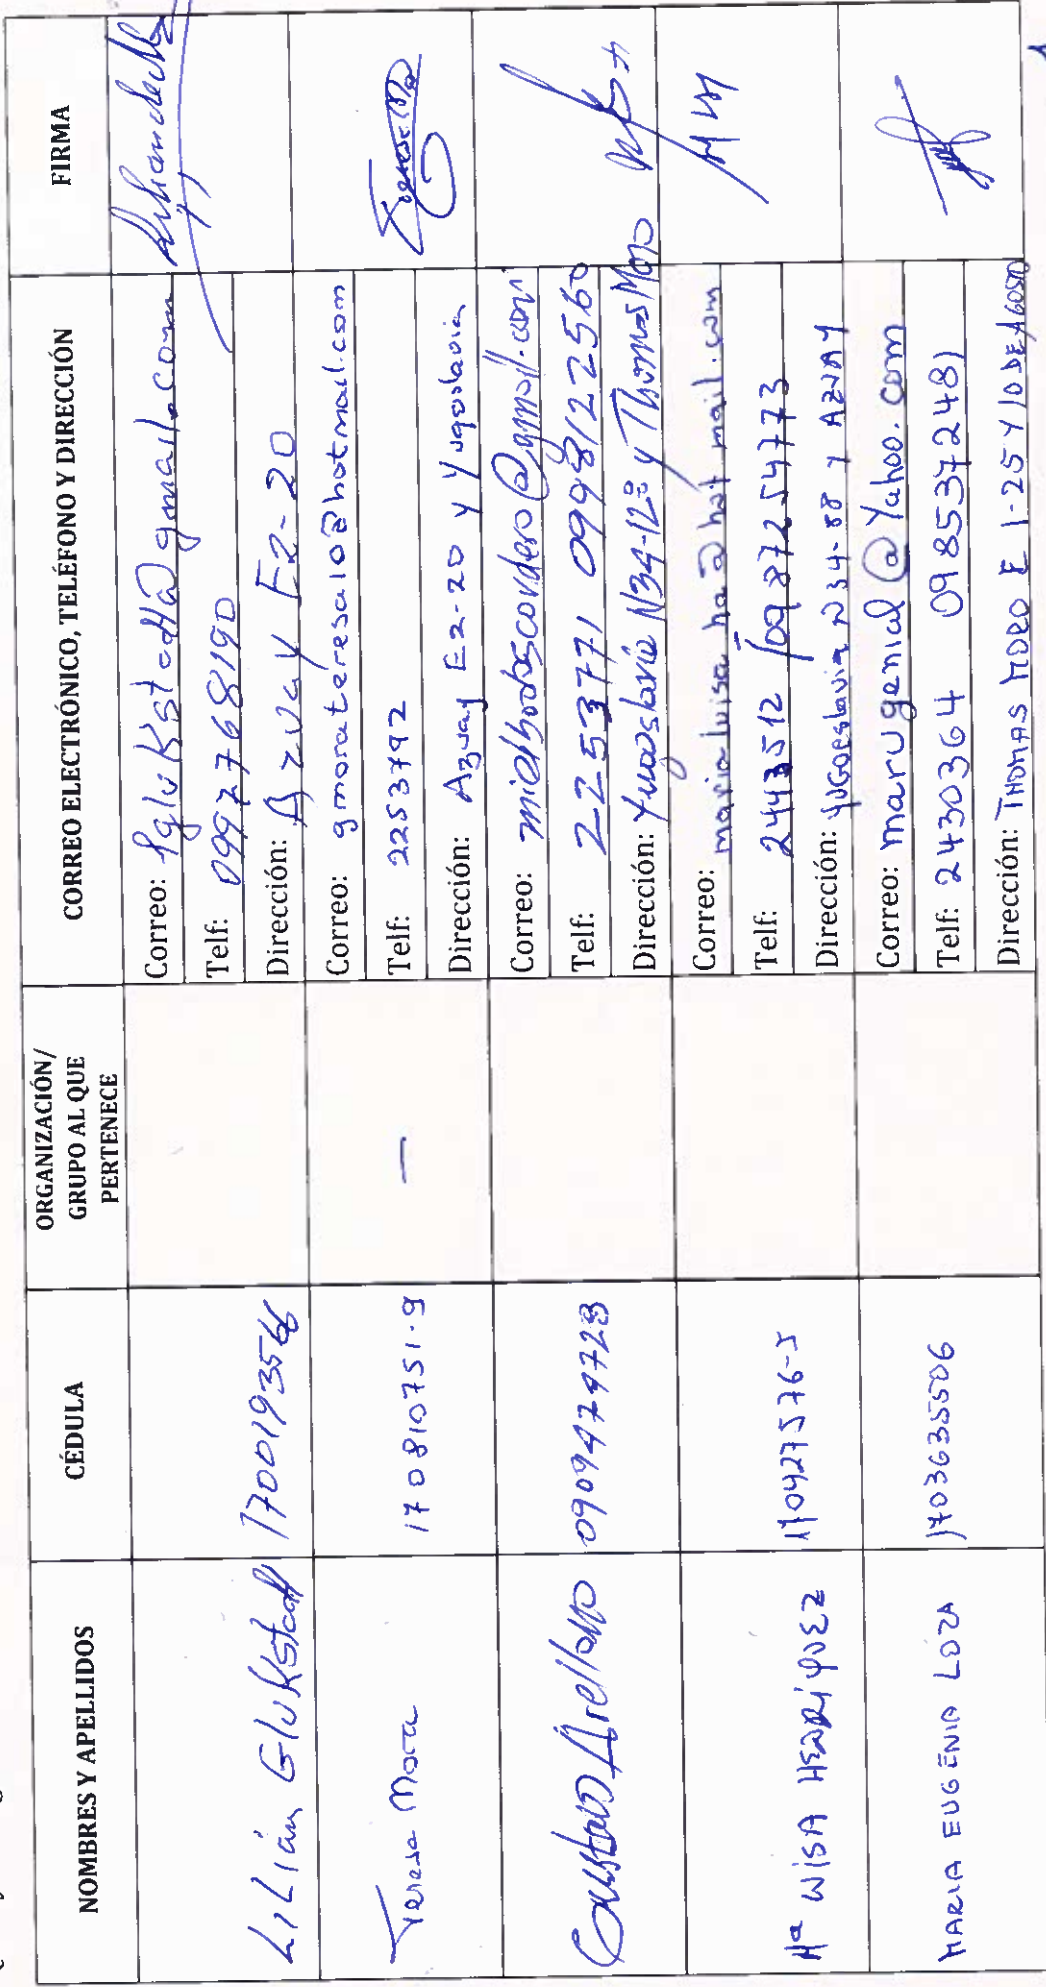 NOMBRES Y APELLIDOS
CÉDULA
ORGANIZACIÓN/
GRUPO AL QUE
PERTENECE
CORREO ELECTRÓNICO, TELÉFONO Y DIRECCIÓN
FIRMA
LiLián Glukstadt
Correo:
Telf: 0997768190
Dirección: Azuay E2-20
Teresa Mora
170810751-9
—
Correo: gmorateresa10@hotmail.com
Telf: 2253792
Dirección: Azuay E2-20 y Yugoslavia
Teresa Mo
Gustavo Arellano
0909474723
Correo:
Telf: 2253771 0998122560
Dirección: Yugoslavia N34-128 y Thomas Moro
Mª LUISA HENRÍQUEZ
170427576-5
Correo: marialuisa ha@hotmail.com
Telf: 2443512 / 0987254773
Dirección: YUGOESLAVIA N34-88 Y AZUAY
MARIA EUGENIA LOZA
1703635506
Correo: marugenial@Yahoo.com
Telf: 2430364 0985372481
Dirección: THOMAS MORO E 1-25 Y 10 DE AGOSTO